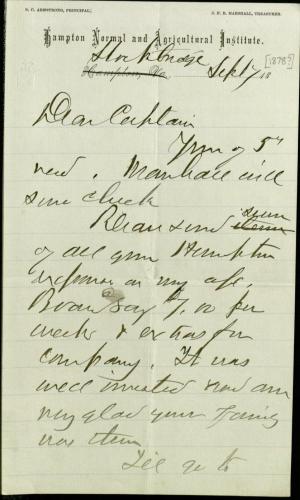 S. C. ARMSTRONG, PRINCIPAL.
J. F. B. MARSHALL, TREASURER.
Hampton Normal and Agricultural Institute.
Stockbridge
Hampton, Va.
Sept 7 18
[1878?]
Dear Captain
Yours of 5th
recd. Marshall will
send check
Please send
of all your Hampton
expenses on my a/c,
Board say 7.00 per
week & extras for
company. It was
well invested & am
very glad your family
was there
I'll go to